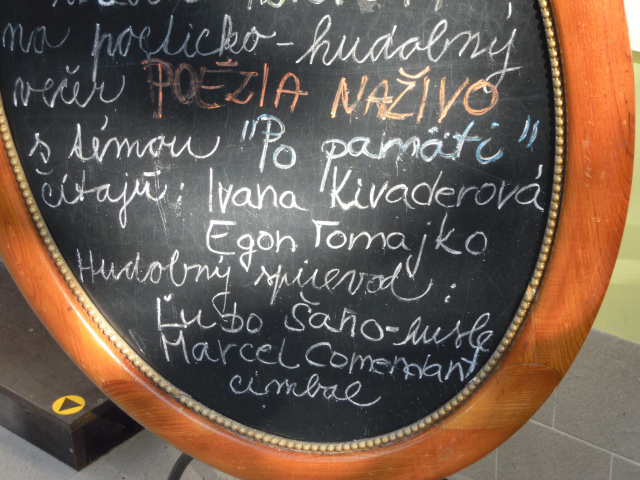 na poeticko-hudobný
večer POÉZIA NAŽIVO
s témou "Po pamäti"
čítajú: Ivana Kivaderová
Egon Tomajko
Hudobný sprievod:
Ľubo Šaňo-husle
Marcel Comendant
cimbal